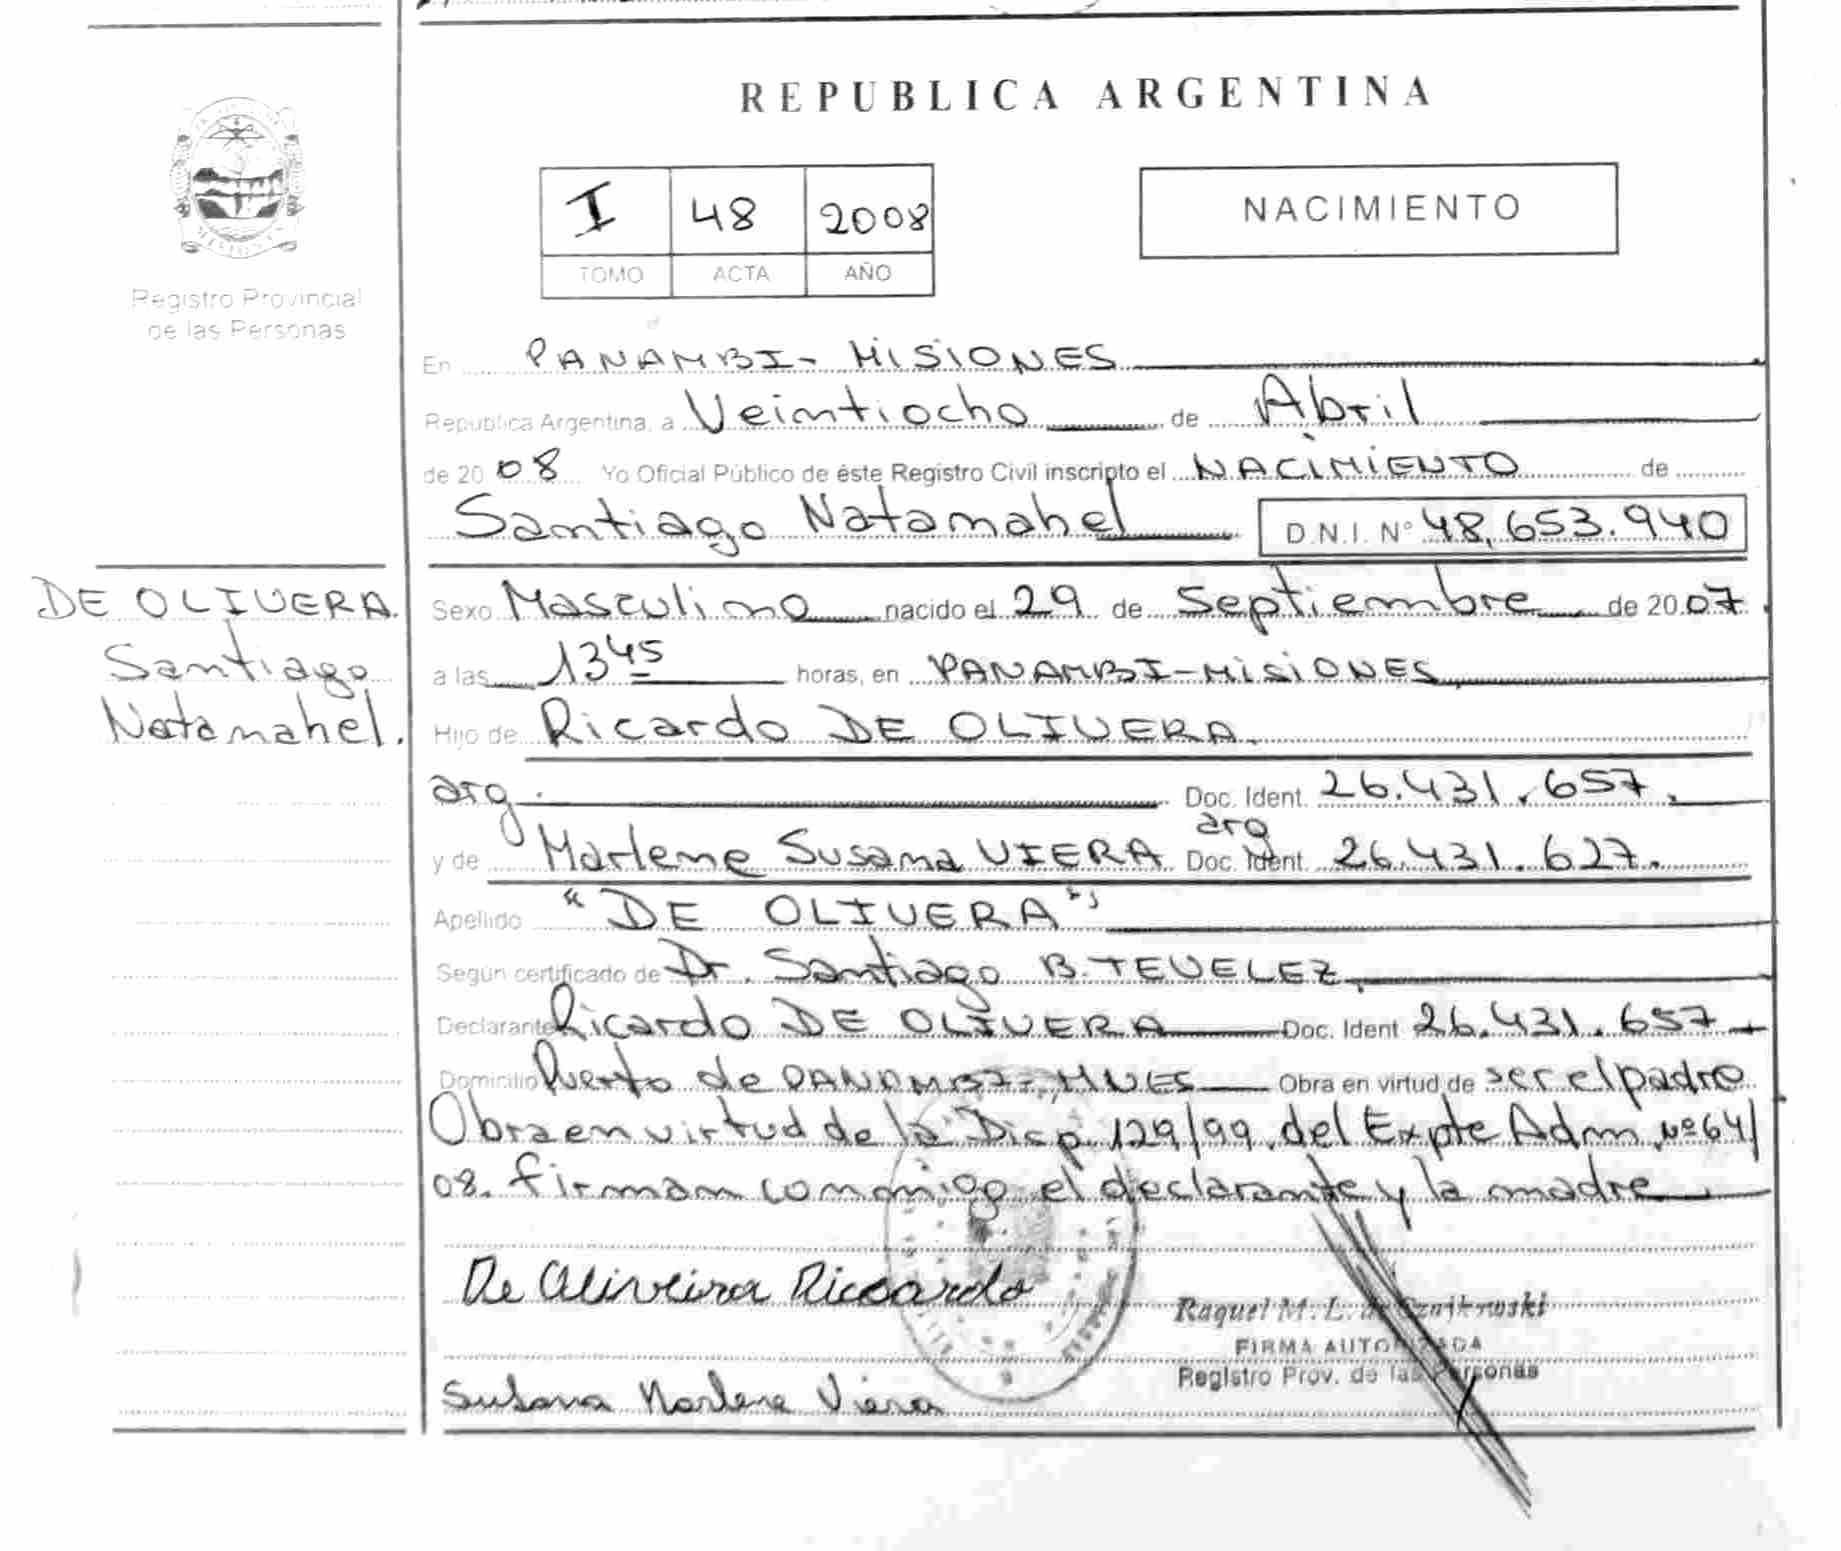 REPUBLICA ARGENTINA
I 48 2008
TOMO ACTA AÑO
NACIMIENTO
Registro Provincial
de las Personas
En PANAMBI - MISIONES
Republica Argentina, a Veintiocho de Abril
de 20 08 Yo Oficial Público de éste Registro Civil inscripto el NACIMIENTO de
Santiago Natanahel D.N.I. Nº 48.653.940
DE OLIVERA.
Santiago
Natanahel.
Sexo Masculino nacido el 29 de Septiembre de 20 07
a las 13 45 horas, en PANAMBI - MISIONES
Hijo de Ricardo DE OLIVERA.
arg. Doc. Ident. 26.431.657.
y de Marlene Susana VIERA arg Doc. Ident. 26.431.627.
Apellido "DE OLIVERA",
Según certificado de Dr. Santiago B. TEVELEZ
Declarante Ricardo DE OLIVERA Doc. Ident 26.431.657
Domicilio Puerto de PANAMBI - MNES Obra en virtud de ser el padre
Obra en virtud de la Disp. 129/99 del Expte Adm. Nº 64/
08. firman conmigo el declarante y la madre
De Oliveira Riccardo
Raquel M. L. de
FIRMA AUTORIZADA
Registro Prov. de las Personas
Susana Marlene Viera